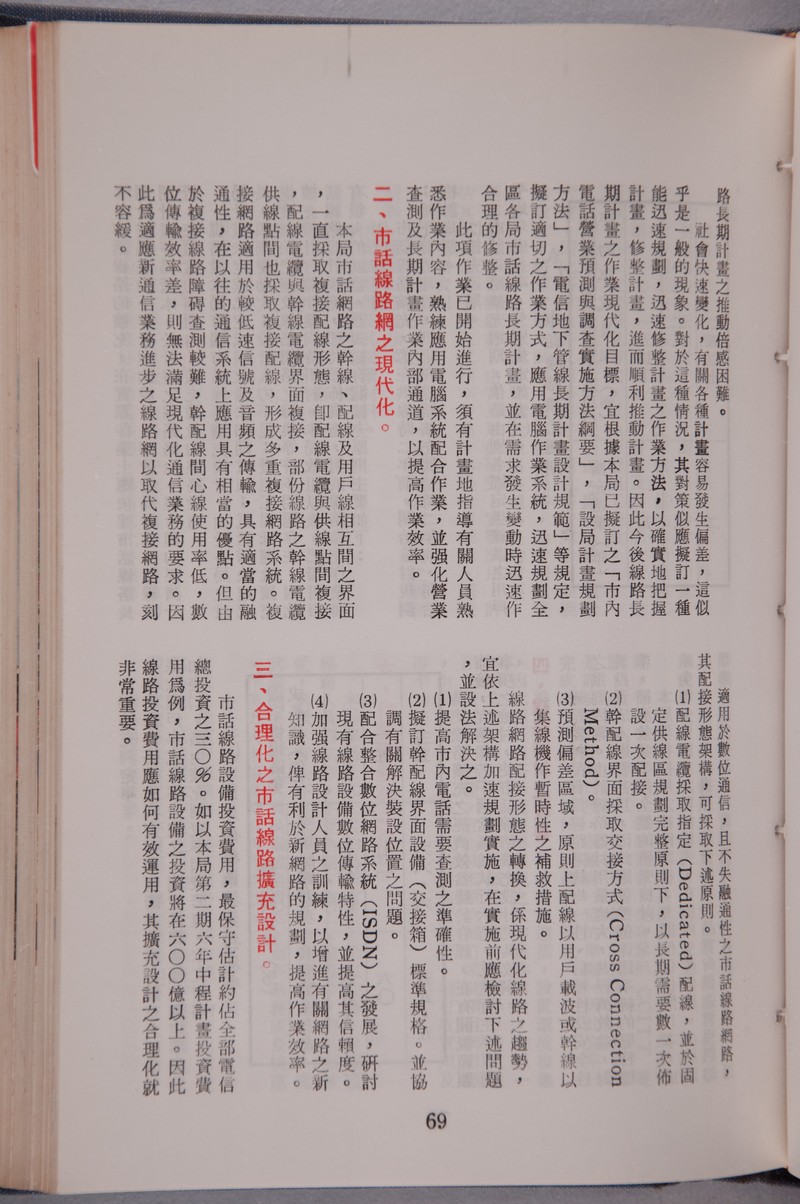 路長期計畫之推動倍感困難。
社會快速變化，有關各種計畫容易發生偏差，這似
乎是一般的現象。對於這種情況，其對策似應擬訂一種
能迅速規劃，迅速修整計畫之作業方法，以確實地把握
計畫，修整計畫，進而順利推動計畫。因此今後線路長
期計畫之作業現代化目標，宜根據本局已擬訂之「市內
電話營業預測與調查實施方法綱要」，「設局計畫規劃
方法」，「電信地下管線長期計畫設計規範」等規定，
擬訂適切之作業方式，應用電腦作業系統，迅速規劃全
區各局市話線路長期計畫，並在需求發生變動時迅速作
合理的修整。
此項作業已開始進行，須有計畫地指導有關人員熟
悉作業內容，熟練應用電腦系統配合作業，並强化營業
查測及長期計畫作業內部通道，以提高作業效率。
二、市話線路網之現代化。
本局市話網路之幹線、配線及用戶線相互間之界面
，一直採取複接配線形態，卽配線電纜與供線點間複接
，配線電纜與幹線電纜界面複接，部份線路之幹線電纜
供線點間也採取複接配線，形成多重複接網路系統。複
接網路適用於較低速信號及音頻之傳輸，具有適當的融
通性，在以往的通信系統上應用具有相當的優點。但由
於複接線路障碍查測較難，幹配線間心線使用率低，數
位傳輸效率差，則無法滿足現代化通信業務的要求。因
此爲適應新通信業務進步之線路網以取代複接網路，刻
不容緩。
適用於數位通信，且不失融通性之市話線路網路，
其配接形態架構，可採取下述原則。
⑴配線電纜採取指定（Dedicated）配線，並於固
定供線區規劃完整原則下，以長期需要數一次佈
設一次配接。
⑵幹配線界面採取交接方式（Cross Connection
Method）。
⑶預測偏差區域，原則上配線以用戶載波或幹線以
集線機作暫時性之補救措施。
線路網路配接形態之轉換，係現代化線路之趨勢，
宜依上述架構加速規劃實施，在實施前應檢討下述問題
，並設法解決之。
⑴提高市內電話需要查測之準確性。
⑵擬訂幹配線界面設備（交接箱）標準規格。並協
調有關解決裝設位置之問題。
⑶配合整合數位網路系統（ISDN）之發展，研討
現有線路設備數位傳輸特性，並提高其信賴度。
⑷加强線路設計人員之訓練，以增進有關網路之新
知識，俾有利於新網路的規劃，提高作業效率。
三、合理化之市話線路擴充設計。
市話線路設備投資費用，最保守估計約佔全部電信
總投資之三〇％。如以本局第二期六年中程計畫投資費
用爲例，市話線路設備之投資將在六〇〇億以上。因此
線路投資費用應如何有效運用，其擴充設計之合理化就
非常重要。
69